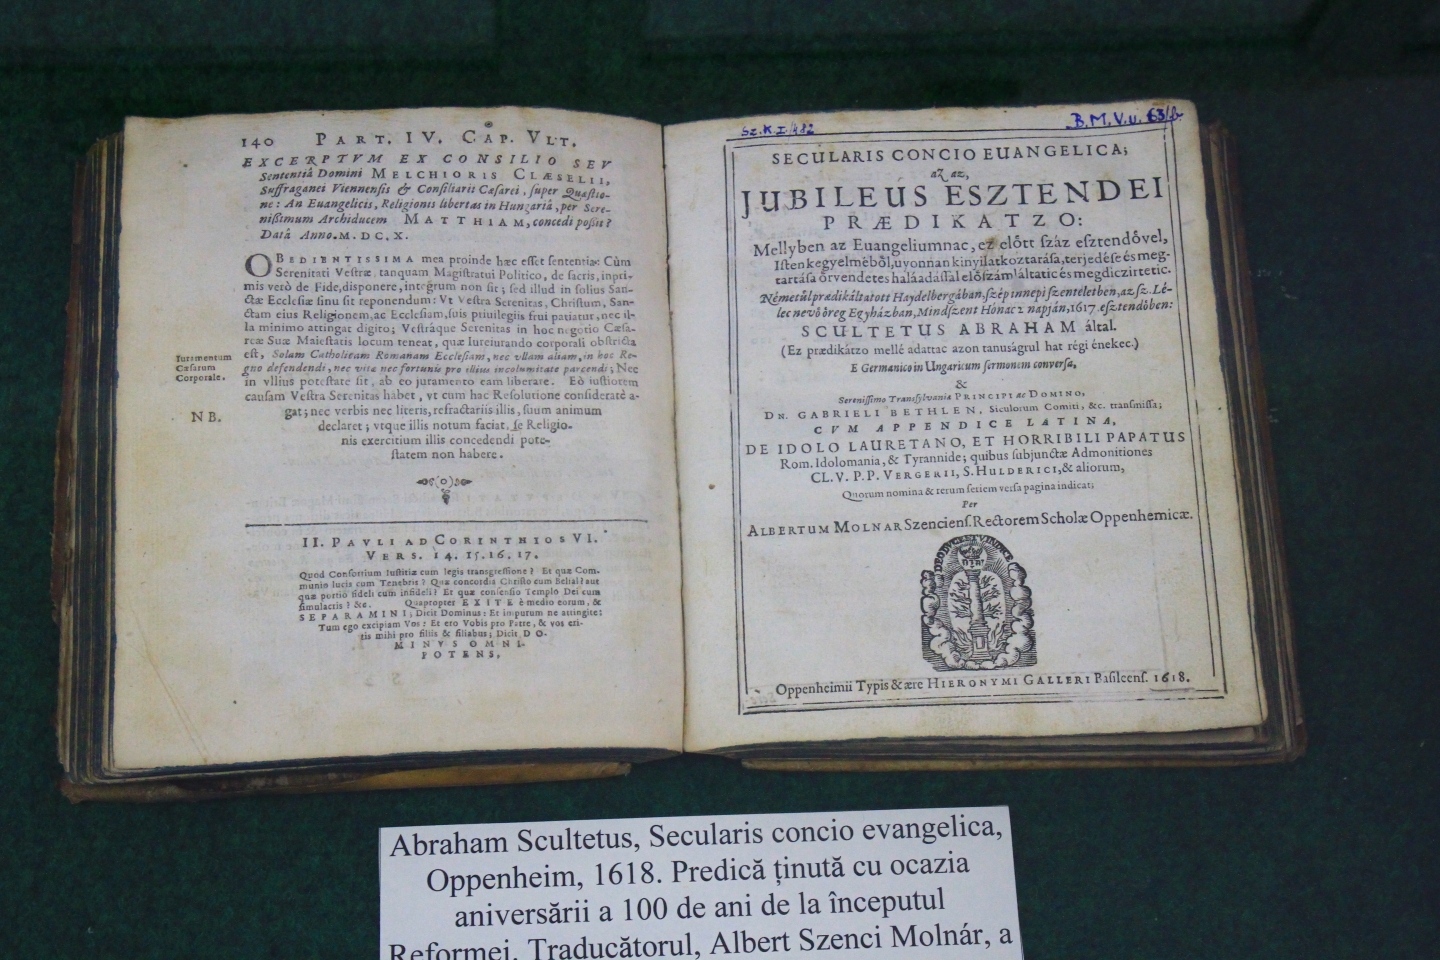 140 PART. IV. CAP. VLT.
EXCERPTVM EX CONSILIO SEV
Sententiâ Domini MELCHIORIS CLÆSELII,
Suffraganei Viennensis & Consiliarii Cæsarei, super Quæstio-
ne: An Euangelicis, Religionis libertas in Hungariâ, per Sere-
nißimum Archiducem MATTHIAM, concedi poßit?
Datâ Anno. M. DC. X.
OBEDIENTISSIMA mea proinde hæc esset sententia: Cùm
Serenitati Vestræ, tanquam Magistratui Politico, de sacris, inpri-
mis verò de Fide, disponere, integrum non sit; sed illud in solius San-
ctæ Ecclesiæ sinu sit reponendum: Vt Vestra Serenitas, Christum, San-
ctam eius Religionem, ac Ecclesiam, suis priuilegiis frui patiatur, nec il-
la minimo attingat digito; Vestráque Serenitas in hoc negotio Cæsa-
reæ Suæ Maiestatis locum teneat, quæ Iureiurando corporali obstricta
est, Solam Catholicam Romanam Ecclesiam, nec vllam aliam, in hoc Re-
gno defendendi, nec vitæ nec fortunis pro illius incolumitate parcendi; Nec
in vllius potestate sit, ab eo juramento eam liberare. Eò iustiorem
causam Vestra Serenitas habet, vt cum hac Resolutione consideratè a-
gat; nec verbis nec literis, refractariis illis, suum animum
declaret; vtque illis notum faciat, se Religio-
nis exercitium illis concedendi pote-
statem non habere.
Iuramentum
Cæsarum
Corporale.
NB.
II. PAVLI AD CORINTHIOS VI.
VERS. 14. 15. 16. 17.
Quod Consortium Iustitiæ cum legis transgressione? Et quæ Com-
munio lucis cum Tenebris? Quæ concordia Christo cum Belial? aut
quæ portio fideli cum infideli? Et quæ consensio Templo Dei cum
simulacris? &c. Quapropter EXITE è medio eorum, &
SEPARAMINI; Dicit Dominus: Et impurum ne attingite:
Tum ego excipiam Vos: Et ero Vobis pro Patre, & vos eri-
tis mihi pro filiis & filiabus; Dicit DO-
MINVS OMNI-
POTENS.
Sz. K. I. 1482
B. M. V. u. 63/b
SECULARIS CONCIO EUANGELICA;
az az,
JUBILEUS ESZTENDEI
PRÆDIKATZO:
Mellyben az Euangeliumnac, ez elõtt száz esztendõvel,
Isten kegyelmébõl, uyonnan kinyilatkoztatása, terjedése és meg-
tartása örvendetes háláadással elõszámláltatic és megdiczirtetic.
Németûl prædikáltatott Haydelbergában, szép innepi szentéletben, az sz. Lé-
lec nevõ öreg Egyházban, Mindszent Hónac 2 napján, 1617. esztendõben:
SCULTETUS ABRAHAM által.
(Ez prædikátzo mellé adattac azon tanuságrul hat régi énekec.)
E Germanico in Ungaricum sermonem conversa,
&
Serenissimo Transsylvaniæ PRINCIPI ac DOMINO,
DN. GABRIELI BETHLEN, Siculorum Comiti, &c. transmissa;
CVM APPENDICE LATINA,
DE IDOLO LAURETANO, ET HORRIBILI PAPATUS
Rom. Idolomania, & Tyrannide; quibus subjunctæ Admonitiones
CL. V. P. P. VERGERII, S. HULDERICI, & aliorum,
Quorum nomina & rerum seriem versa pagina indicat;
Per
ALBERTUM MOLNAR Szenciens. Rectorem Scholæ Oppenhemicæ.
Oppenheimii Typis & ære HIERONYMI GALLERI Basileens. 1618.
Abraham Scultetus, Secularis concio evangelica,
Oppenheim, 1618. Predică ținută cu ocazia
aniversării a 100 de ani de la începutul
Reformei. Traducătorul, Albert Szenci Molnár, a